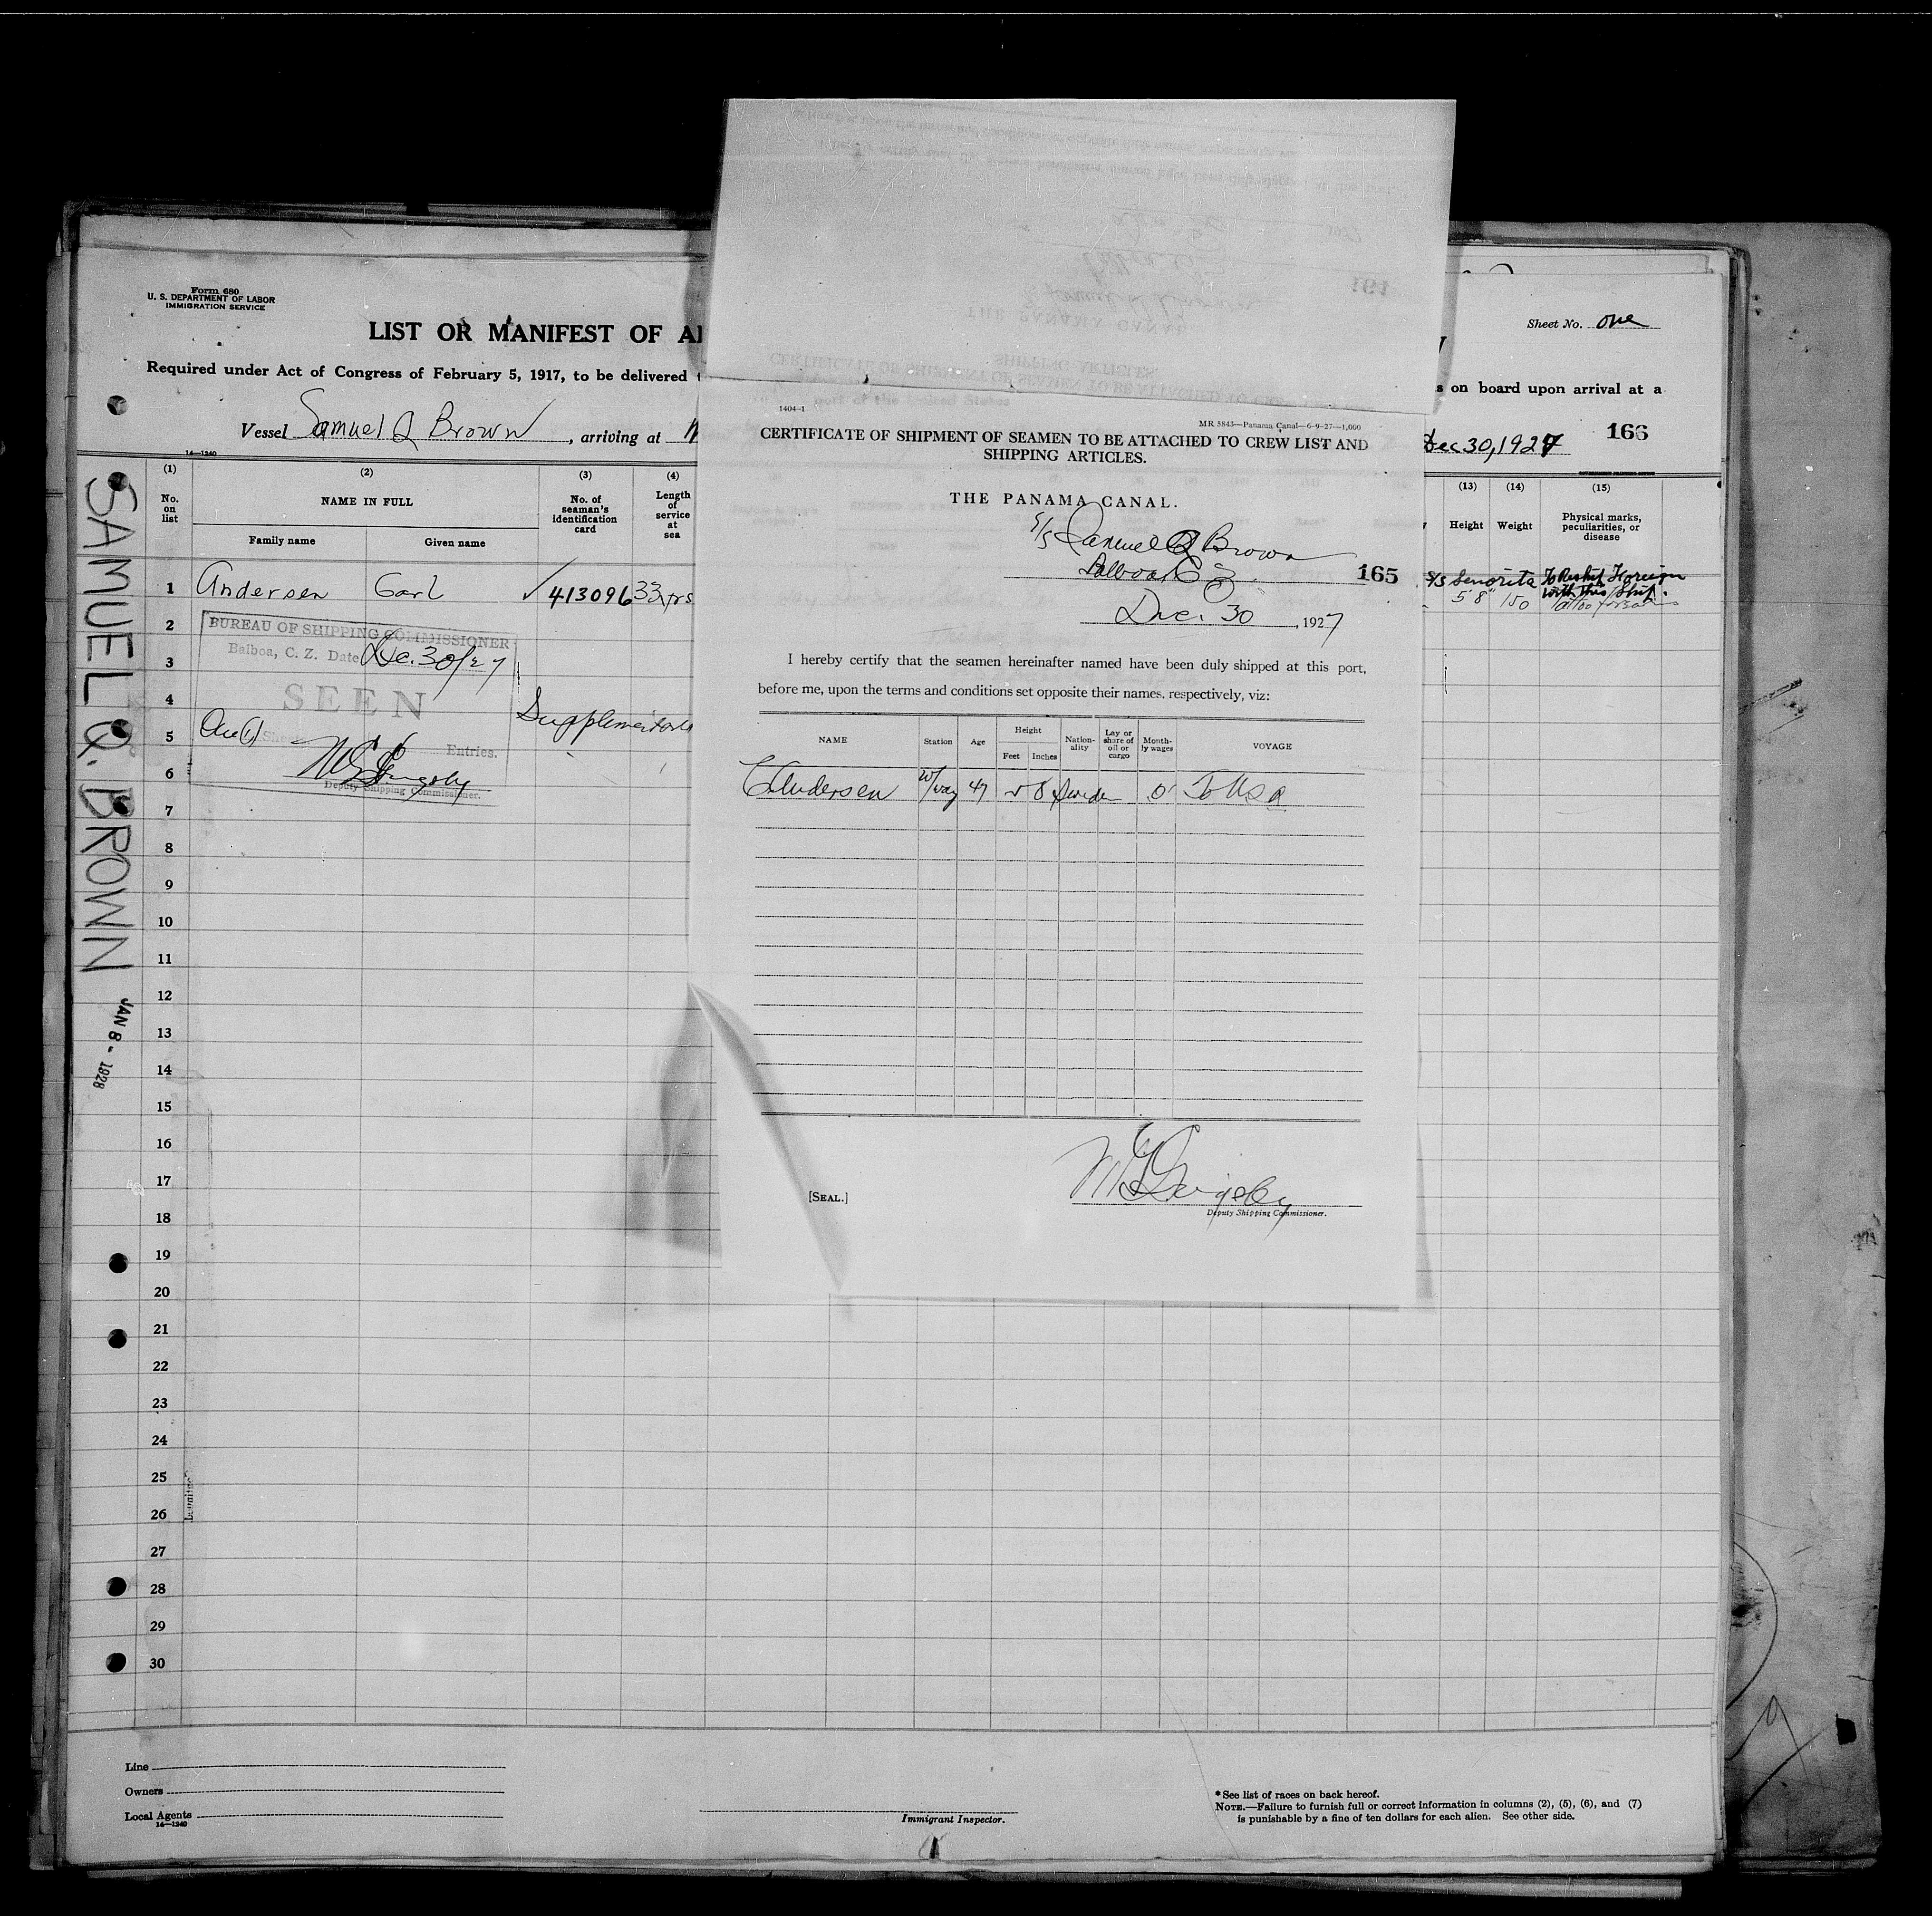 Form 680
U. S. DEPARTMENT OF LABOR
IMMIGRATION SERVICE
LIST OR MANIFEST OF
Required under Act of Congress of February 5, 1917, to be delivered
Vessel Samuel Q Brown, arriving at
14—1240
Sheet No. one
s on board upon arrival at a
Dec 30, 1927
166
(1) (2) (3) (4)
No. on list
NAME IN FULL
Family name Given name
No. of seaman's identification card
Length of service at sea
(13) (14) (15)
Height Weight Physical marks, peculiarities, or disease
1 Andersen Carl 413096 33 yrs
S/S Senorita To Reship Foreign
with this Ship.
5'8" 150
2
3
4
5
6
7
8
9
10
11
12
13
14
15
16
17
18
19
20
21
22
23
24
25
26
27
28
29
30
BUREAU OF SHIPPING COMMISSIONER
Balboa, C. Z. Date Dec. 30/27
SEEN
Entries.
Deputy Shipping Commissioner.
SAMUEL Q. BROWN
JAN 8 - 1928
1404-1
MR 5843—Panama Canal—6-9-27—1,000
CERTIFICATE OF SHIPMENT OF SEAMEN TO BE ATTACHED TO CREW LIST AND
SHIPPING ARTICLES.
THE PANAMA CANAL.
S/S Samuel Q Brown
Balboa C Z.
165
Dec. 30, 1927
I hereby certify that the seamen hereinafter named have been duly shipped at this port,
before me, upon the terms and conditions set opposite their names, respectively, viz:
NAME Station Age Height Feet Inches Nationality Lay or share of oil or cargo Monthly wages VOYAGE
C Andersen W/way 47 5 8 Sweden 0 To USA
[SEAL.]
Deputy Shipping Commissioner.
Line
Owners
Local Agents
14—1240
Immigrant Inspector.
* See list of races on back hereof.
NOTE.—Failure to furnish full or correct information in columns (2), (5), (6), and (7)
is punishable by a fine of ten dollars for each alien. See other side.